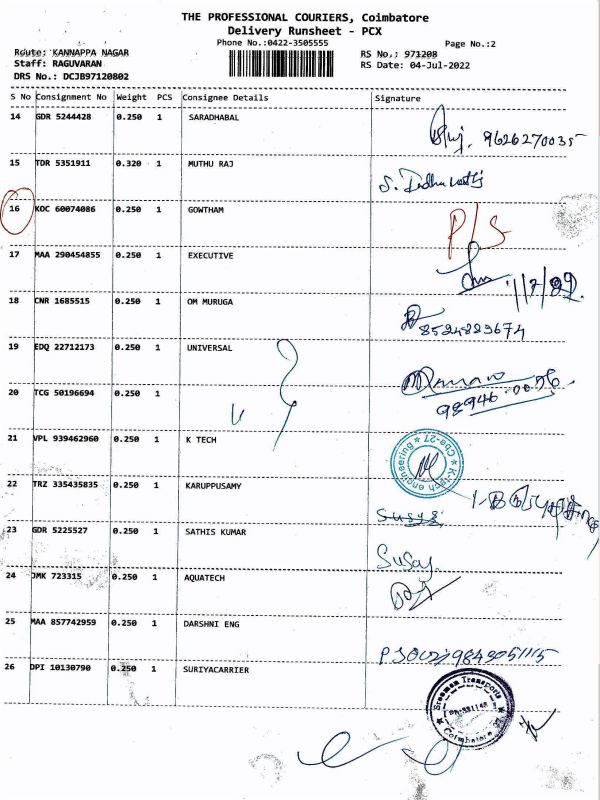 THE PROFESSIONAL COURIERS, Coimbatore
Delivery Runsheet - PCX
Phone No.:0422-3505555
Page No.:2
Route: KANNAPPA NAGAR
RS No.: 971208
Staff: RAGUVARAN
RS Date: 04-Jul-2022
DRS No.: DCJB97120802
S No Consignment No Weight PCS Consignee Details Signature
14 GDR 5244428 0.250 1 SARADHABAL
9626270035
15 TDR 5351911 0.320 1 MUTHU RAJ
16 KOC 60074086 0.250 1 GOWTHAM
P/S
17 MAA 290454855 0.250 1 EXECUTIVE
18 CNR 1685515 0.250 1 OM MURUGA
8524883674
19 EDQ 22712173 0.250 1 UNIVERSAL
20 TCG 50196694 0.250 1
21 VPL 939462960 0.250 1 K TECH
K-tech engineering Cbe-27
22 TRZ 335435835 0.250 1 KARUPPUSAMY
23 GDR 5225527 0.250 1 SATHIS KUMAR
Susaj
24 JMK 723315 0.250 1 AQUATECH
25 MAA 857742959 0.250 1 DARSHNI ENG
9843051115
26 DPI 10130790 0.250 1 SURIYACARRIER
Transports
Coimbatore